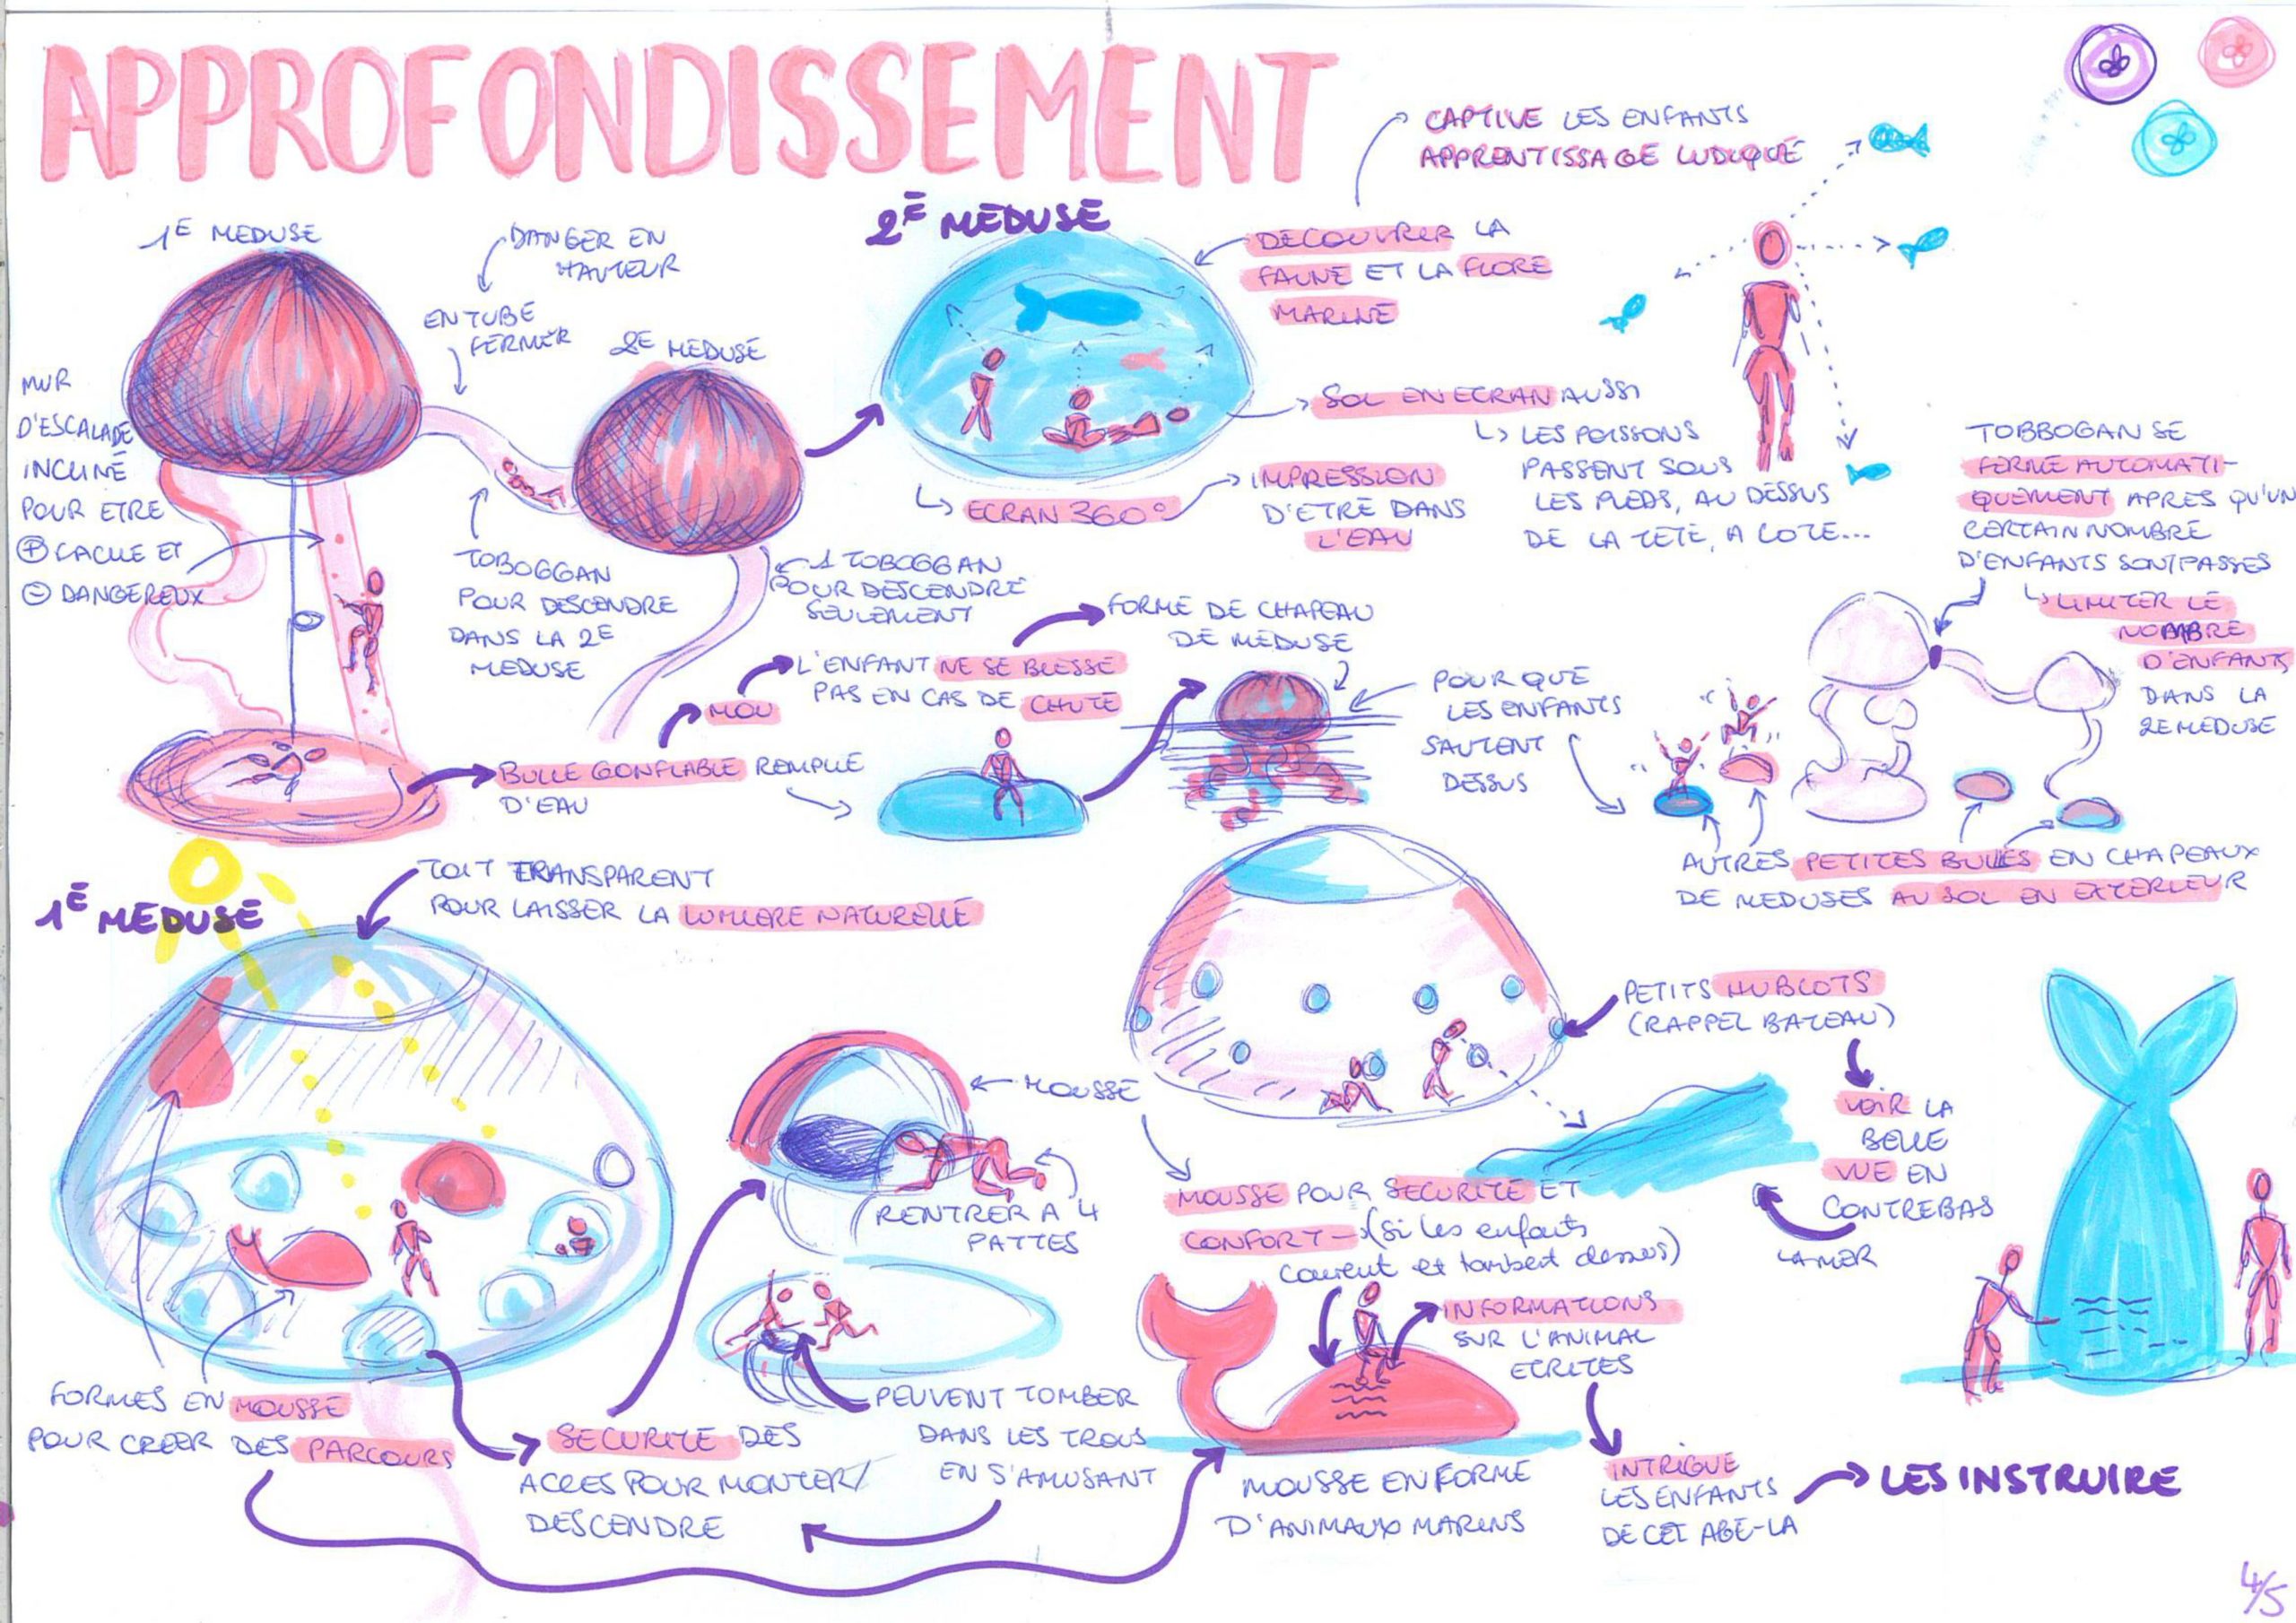 APPROFONDISSEMENT
CAPTIVE LES ENFANTS
APPRENTISSAGE LUDIQUE
1E MEDUSE
DANGER EN
HAUTEUR
EN TUBE
FERMER
2E MEDUSE
2E MEDUSE
DECOUVRIR LA
FAUNE ET LA FLORE
MARINE
MUR
D'ESCALADE
INCLINÉ
POUR ETRE
+ FACILE ET
- DANGEREUX
TOBOGGAN
POUR DESCENDRE
DANS LA 2E
MEDUSE
1 TOBOGGAN
POUR DESCENDRE
SEULEMENT
ECRAN 360°
IMPRESSION
D'ETRE DANS
L'EAU
SOL EN ECRAN AUSSI
LES POISSONS
PASSENT SOUS
LES PIEDS, AU DESSUS
DE LA TETE, A COTE...
TOBBOGAN SE
FERME AUTOMATI-
QUEMENT APRES QU'UN
CERTAIN NOMBRE
D'ENFANTS SONT PASSES
LIMITER LE
NOMBRE
D'ENFANTS
DANS LA
2E MEDUSE
BULLE GONFLABLE REMPLIE
D'EAU
MOU
L'ENFANT NE SE BLESSE
PAS EN CAS DE CHUTE
FORME DE CHAPEAU
DE MEDUSE
POUR QUE
LES ENFANTS
SAUTENT
DESSUS
AUTRES PETITES BULLES EN CHAPEAUX
DE MEDUSES AU SOL EN EXTERIEUR
1E MEDUSE
TOIT TRANSPARENT
POUR LAISSER LA LUMIERE NATURELLE
PETITS HUBLOTS
(RAPPEL BATEAU)
VOIR LA
BELLE
VUE EN
CONTREBAS
LA MER
MOUSSE
RENTRER A 4
PATTES
MOUSSE POUR SECURITE ET
CONFORT - (si les enfants
courent et tombent dessus)
FORMES EN MOUSSE
POUR CREER DES PARCOURS
SECURITE DES
ACCES POUR MONTER/
DESCENDRE
PEUVENT TOMBER
DANS LES TROUS
EN S'AMUSANT
INFORMATIONS
SUR L'ANIMAL
ECRITES
MOUSSE EN FORME
D'ANIMAUX MARINS
INTRIGUE
LES ENFANTS
DE CET AGE-LA
LES INSTRUIRE
4/5